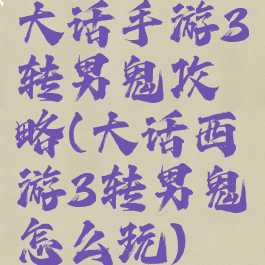 大话手游3
转男鬼攻
略(大话西
游3转男鬼
怎么玩)